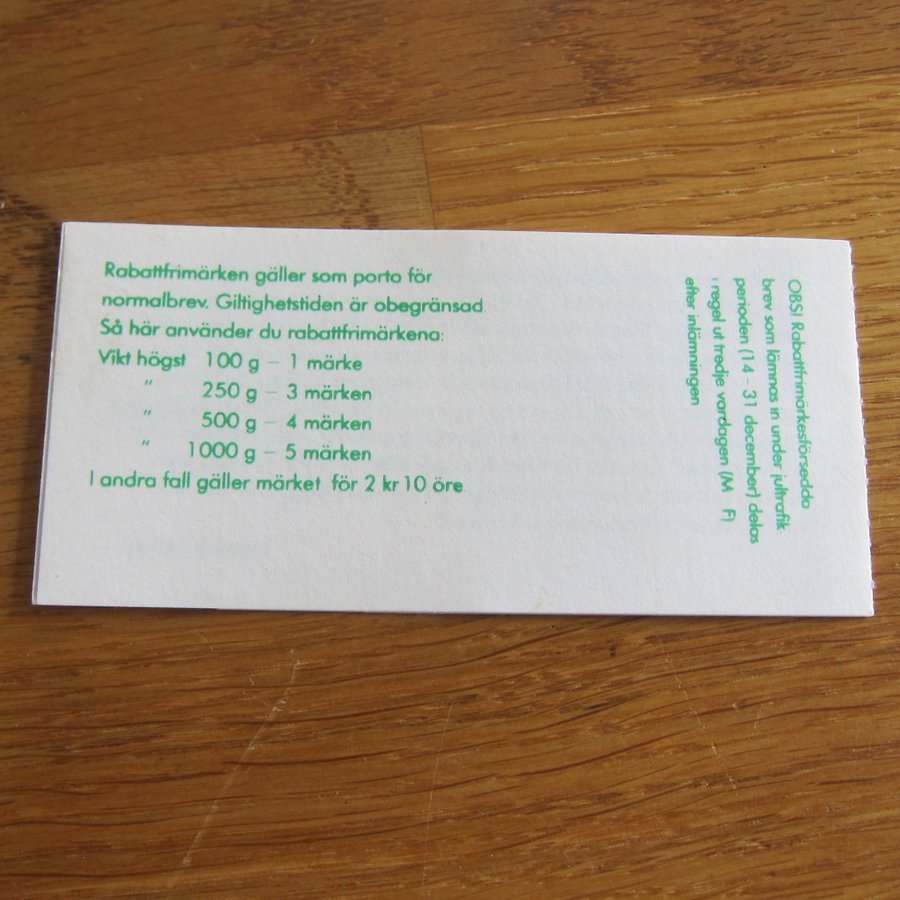 Rabattfrimärken gäller som porto för
normalbrev. Giltighetstiden är obegränsad
Så här använder du rabattfrimärkena:
Vikt högst 100 g – 1 märke
" 250 g – 3 märken
" 500 g – 4 märken
" 1000 g – 5 märken
I andra fall gäller märket för 2 kr 10 öre
OBS! Rabattfrimärkesförsedda
brev som lämnas in under jultrafik
perioden (14 - 31 december) delas
i regel ut tredje vardagen (M F)
efter inlämningen